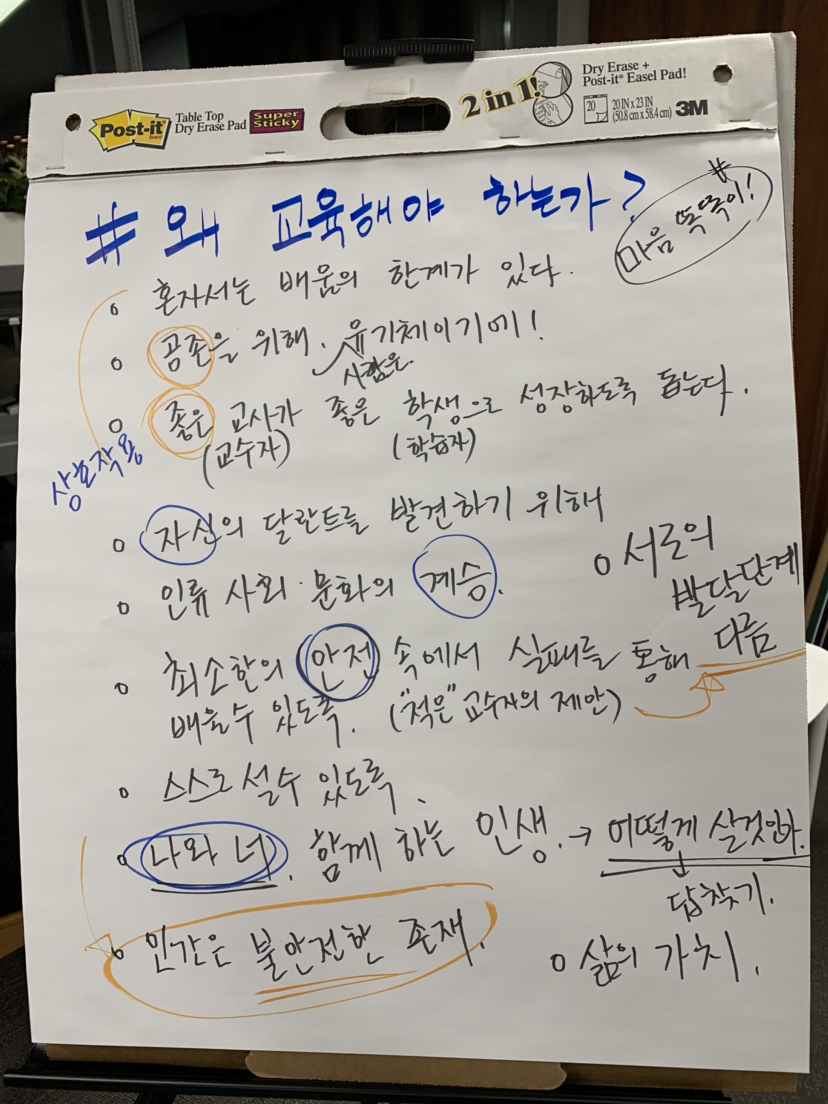 Post-it
Brand
Table Top
Dry Erase Pad
Super
Sticky
2 in 1!
Dry Erase +
Post-it® Easel Pad!
20
20 IN x 23 IN
(50.8 cm x 58.4 cm)
3M
# 왜 교육해야 하는가?
#
마음 똑똑이!
o 혼자서는 배움의 한계가 있다.
o 공존을 위해. 유기체이기에!
사람은.
o 좋은 교사가 좋은 학생으로 성장하도록 돕는다.
(교수자) (학습자)
상호작용
o 자신의 달란트를 발견하기 위해
o 인류 사회·문화의 계승.
o 서로의
발달단계
다름
o 최소한의 (안전) 속에서 실패를 통해
배울수 있도록. ("적은" 교수자의 제안)
o 스스로 설수 있도록.
o 나와 너. 함께 하는 인생. → 어떻게 살것인가.
답찾기.
o 인간은 불안전한 존재.
o 삶의 가치.